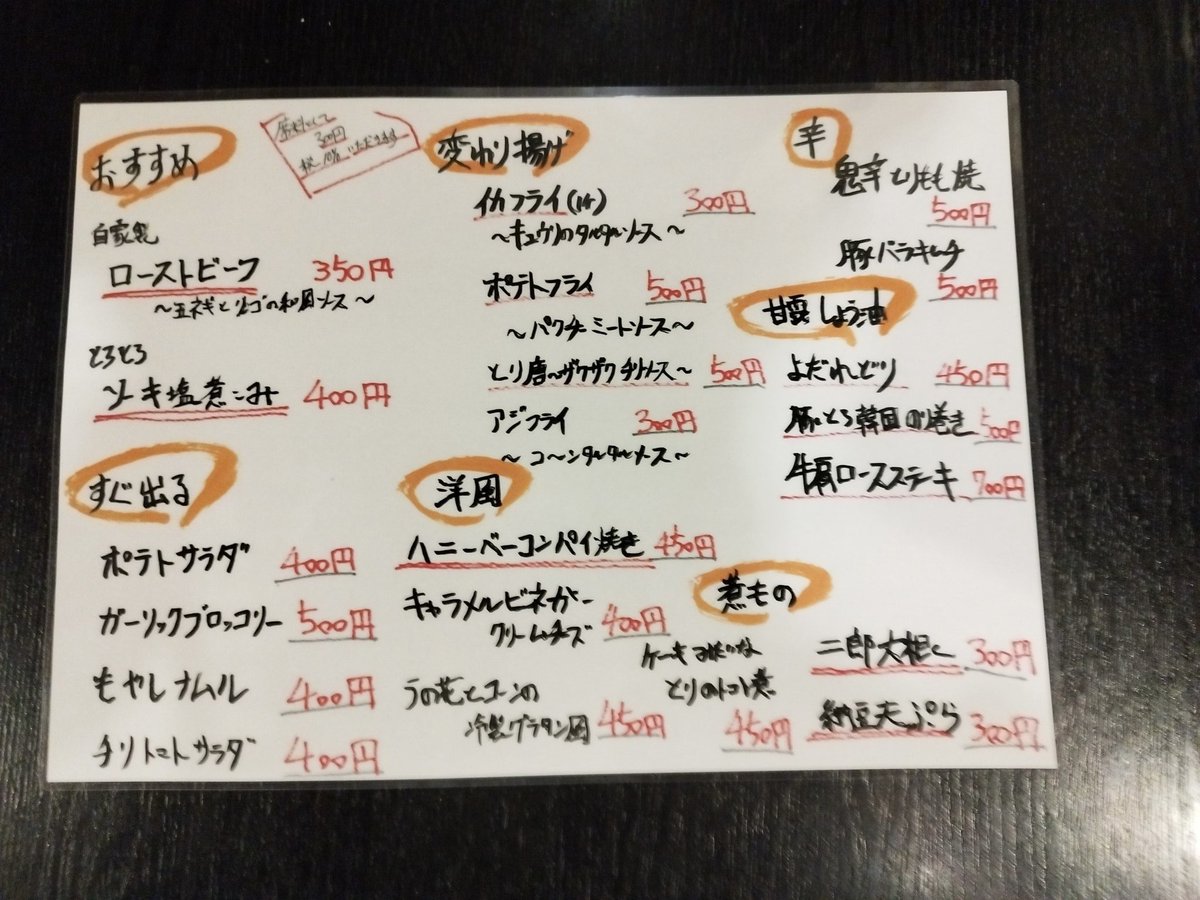 おすすめ
300円
自家製
ローストビーフ 350円
〜玉ネギとリンゴの和風ソース〜
とろとろ
ソーキ塩煮こみ 400円
すぐ出る
ポテトサラダ 400円
ガーリックブロッコリー 500円
もやしナムル 400円
チリトマトサラダ 400円
変わり揚げ
イカフライ 300円
〜キュウリのタルタルソース〜
ポテトフライ 500円
〜パクチーミートソース〜
とり唐〜ザクザクチリソース〜 500円
アジフライ 300円
〜コーンタルタルソース〜
洋風
ハニーベーコンパイ焼き 450円
キャラメルビネガー
クリームチーズ 400円
うの花とコーンの
冷製グラタン風 450円
辛
鬼辛とりもも焼
500円
豚バラキムチ
500円
甘露しょう油
よだれどり 450円
豚とろ韓国のり巻き 500円
牛肩ロースステーキ 700円
煮もの
ケーキみたいな
とりのトマト煮
450円
二郎大根 300円
納豆天ぷら 300円